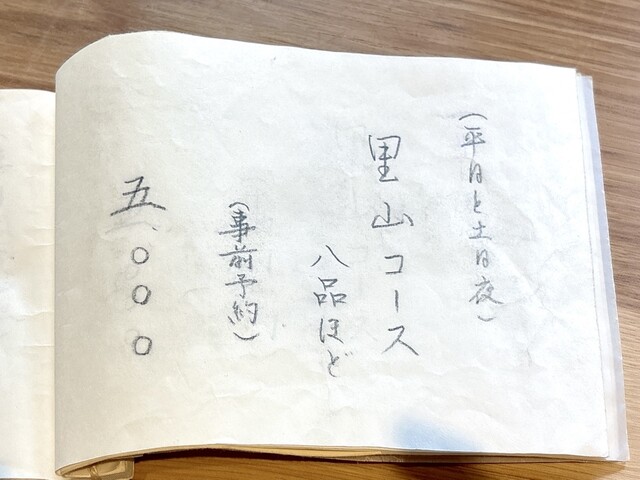 (平日と土日夜)
里山コース
八品ほど
(事前予約)
五、〇〇〇